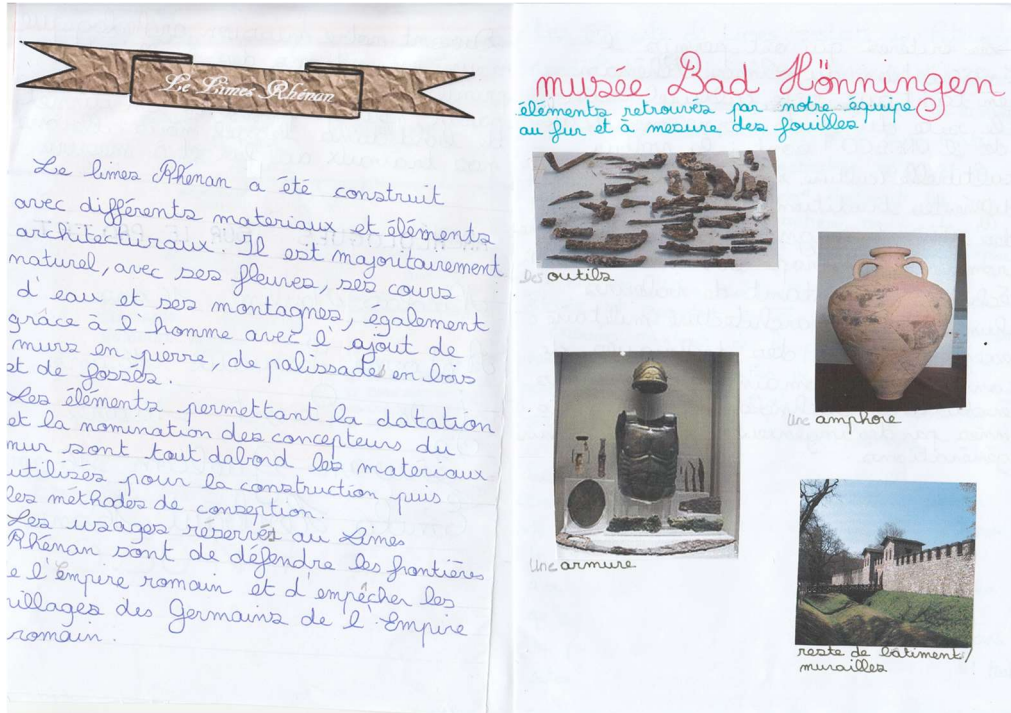 Le Limes Rhénan
Le limes Rhénan a été construit
avec différents materiaux et éléments
architecturaux. Il est majoritairement
naturel, avec ses fleuves, ses cours
d'eau et ses montagnes, également
grâce à l'homme avec l'ajout de
murs en pierre, de palissades en bois
et de fossés.
Les éléments permettant la datation
et la nomination des concepteurs du
mur sont tout dabord les materiaux
utilisés pour la construction puis
les méthodes de conseption.
Les usages réservés au Limes
Rhénan sont de défendre les frontières
e l'empire romain et d'empêcher les
villages des Germains de l'Empire
romain.
musée Bad Hönningen
éléments retrouvés par notre équipe
au fur et à mesure des fouilles
Des outils
Une amphore
Une armure
reste de bâtiment/
murailles